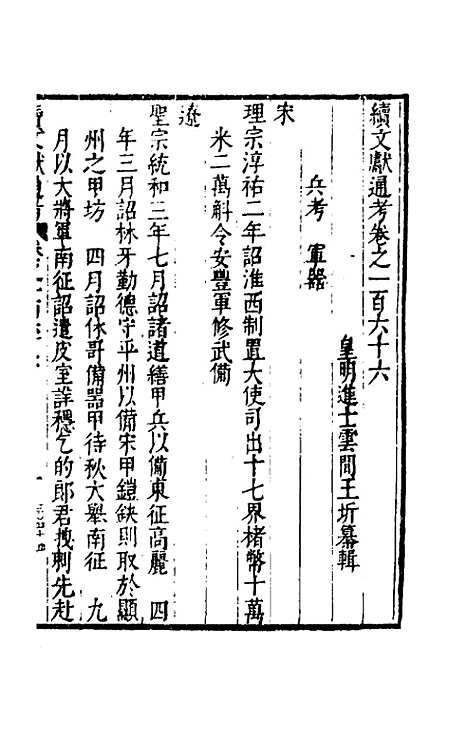 續文獻通考卷之一百六十六
皇明進士雲間王圻纂輯
兵考 軍器
宋
理宗淳祐二年詔淮西制置大使司出十七界楮幣十萬
米二萬斛令安豐軍修武備
遼
聖宗統和三年七月詔諸道繕甲兵以備東征高麗 四
年三月詔林牙勤德守平州以備宋甲鎧缺則取於顯
州之甲坊 四月詔休哥備器甲待秋大舉南征 九
月以大將軍南征詔遣皮室詳穩乞的郎君拽剌先赴